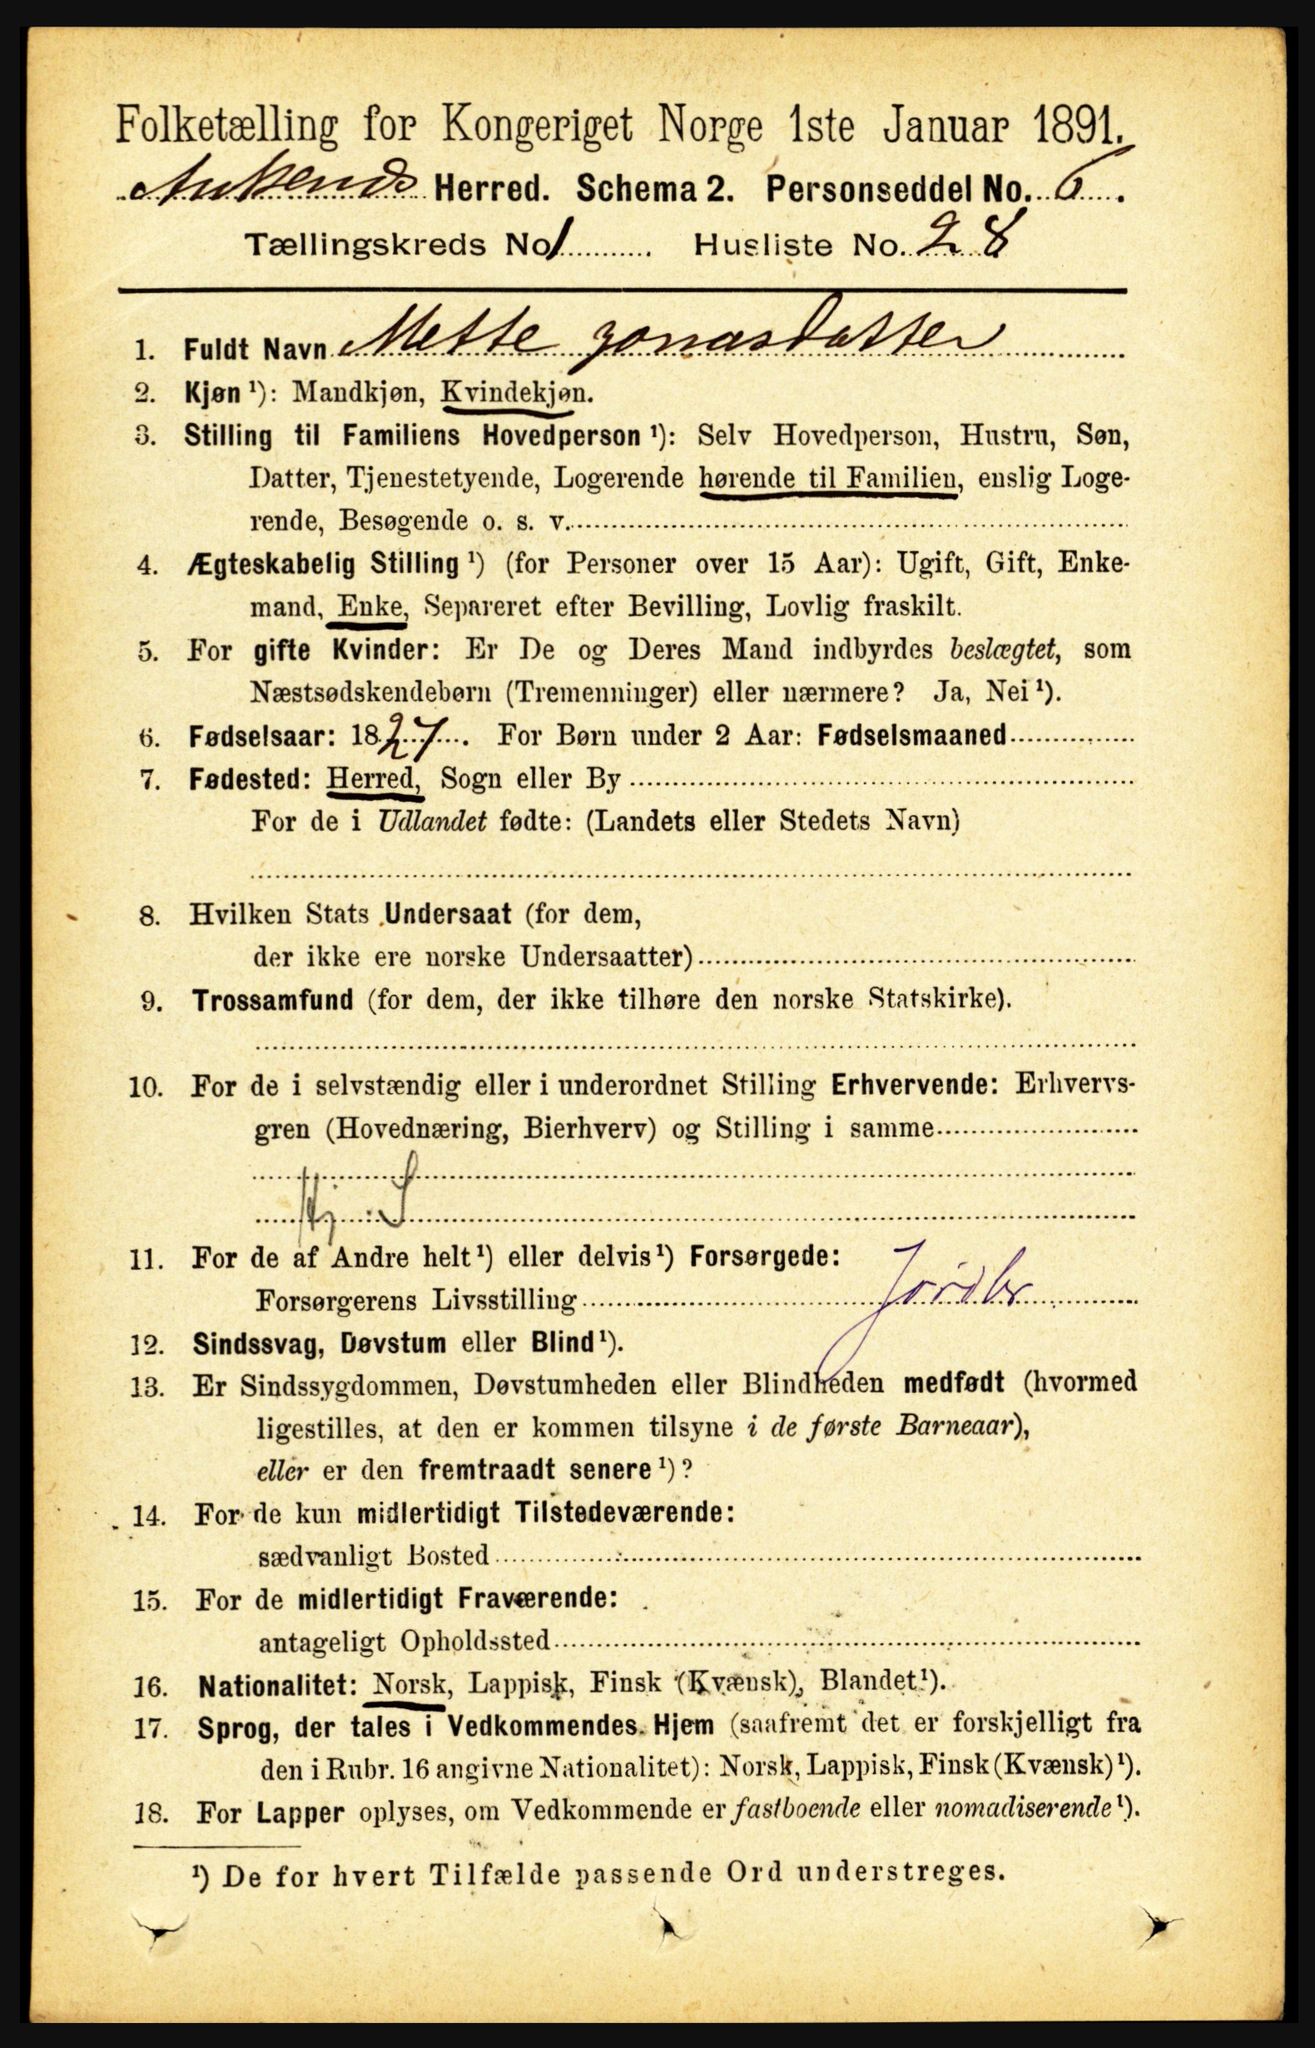 Folketælling for Kongeriget Norge 1ste Januar 1891.
Ankenes Herred. Schema 2. Personseddel No. 6.
Tællingskreds No 1. Husliste No. 28
1. Fuldt Navn Mette Jonasdatter
2. Kjøn ¹): Mandkjøn, Kvindekjøn.
3. Stilling til Familiens Hovedperson ¹): Selv Hovedperson, Hustru, Søn,
Datter, Tjenestetyende, Logerende hørende til Familien, enslig Loge-
rende, Besøgende o. s. v.
4. Ægteskabelig Stilling ¹) (for Personer over 15 Aar): Ugift, Gift, Enke-
mand, Enke, Separeret efter Bevilling, Lovlig fraskilt.
5. For gifte Kvinder: Er De og Deres Mand indbyrdes beslægtet, som
Næstsødskendebørn (Tremenninger) eller nærmere? Ja, Nei ¹).
6. Fødselsaar: 1827. For Børn under 2 Aar: Fødselsmaaned
7. Fødested: Herred, Sogn eller By
For de i Udlandet fødte: (Landets eller Stedets Navn)
8. Hvilken Stats Undersaat (for dem,
der ikke ere norske Undersaatter)
9. Trossamfund (for dem, der ikke tilhøre den norske Statskirke).
10. For de i selvstændig eller i underordnet Stilling Erhvervende: Erhvervs-
gren (Hovednæring, Bierhverv) og Stilling i samme
11. For de af Andre helt ¹) eller delvis ¹) Forsørgede:
Forsørgerens Livsstilling Jordbr
12. Sindssvag, Døvstum eller Blind ¹).
13. Er Sindssygdommen, Døvstumheden eller Blindheden medfødt (hvormed
ligestilles, at den er kommen tilsyne i de første Barneaar),
eller er den fremtraadt senere ¹)?
14. For de kun midlertidigt Tilstedeværende:
sædvanligt Bosted
15. For de midlertidigt Fraværende:
antageligt Opholdssted
16. Nationalitet: Norsk, Lappisk, Finsk (Kvænsk), Blandet ¹).
17. Sprog, der tales i Vedkommendes Hjem (saafremt det er forskjelligt fra
den i Rubr. 16 angivne Nationalitet): Norsk, Lappisk, Finsk (Kvænsk) ¹).
18. For Lapper oplyses, om Vedkommende er fastboende eller nomadiserende ¹).
¹) De for hvert Tilfælde passende Ord understreges.